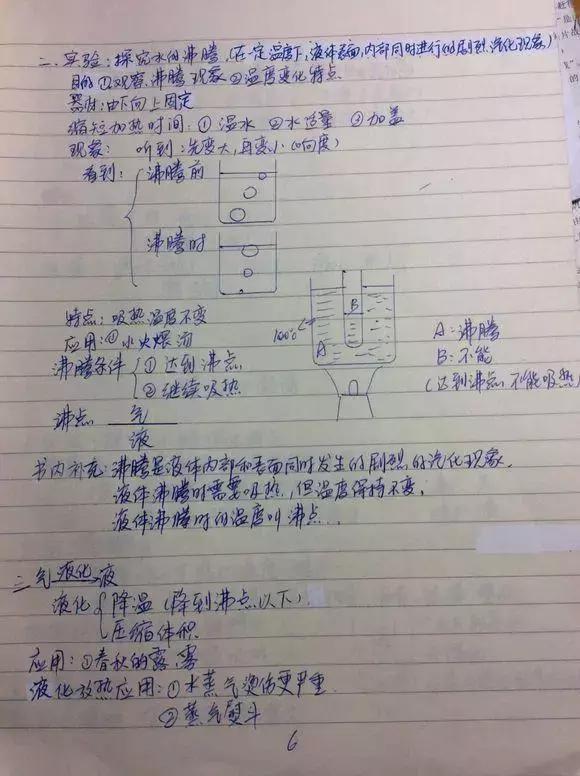 二、实验:探究水的沸腾(在一定温度下,液体表面,内部同时进行的剧烈汽化现象)
目的①观察沸腾现象②温度变化特点
器材:由下向上固定
缩短加热时间:①温水 ②水适量 ③加盖
现象: 听到:先变大,再变小(响度)
看到: 沸腾前
沸腾时
特点:吸热温度不变
应用:①水火煨汤
沸腾条件 ①达到沸点
②继续吸热
100℃ A B
A:沸腾
B:不能
(达到沸点,不能吸热)
沸点 气
液
书内补充:沸腾是液体内部和表面同时发生的剧烈的汽化现象.
液体沸腾时需要吸热,但温度保持不变;
液体沸腾时的温度叫沸点.
三气液化液
液化 降温(降到沸点以下)
压缩体积
应用:①春秋的露,雾
液化放热应用:①水蒸气烫伤更严重
②蒸气熨斗
6